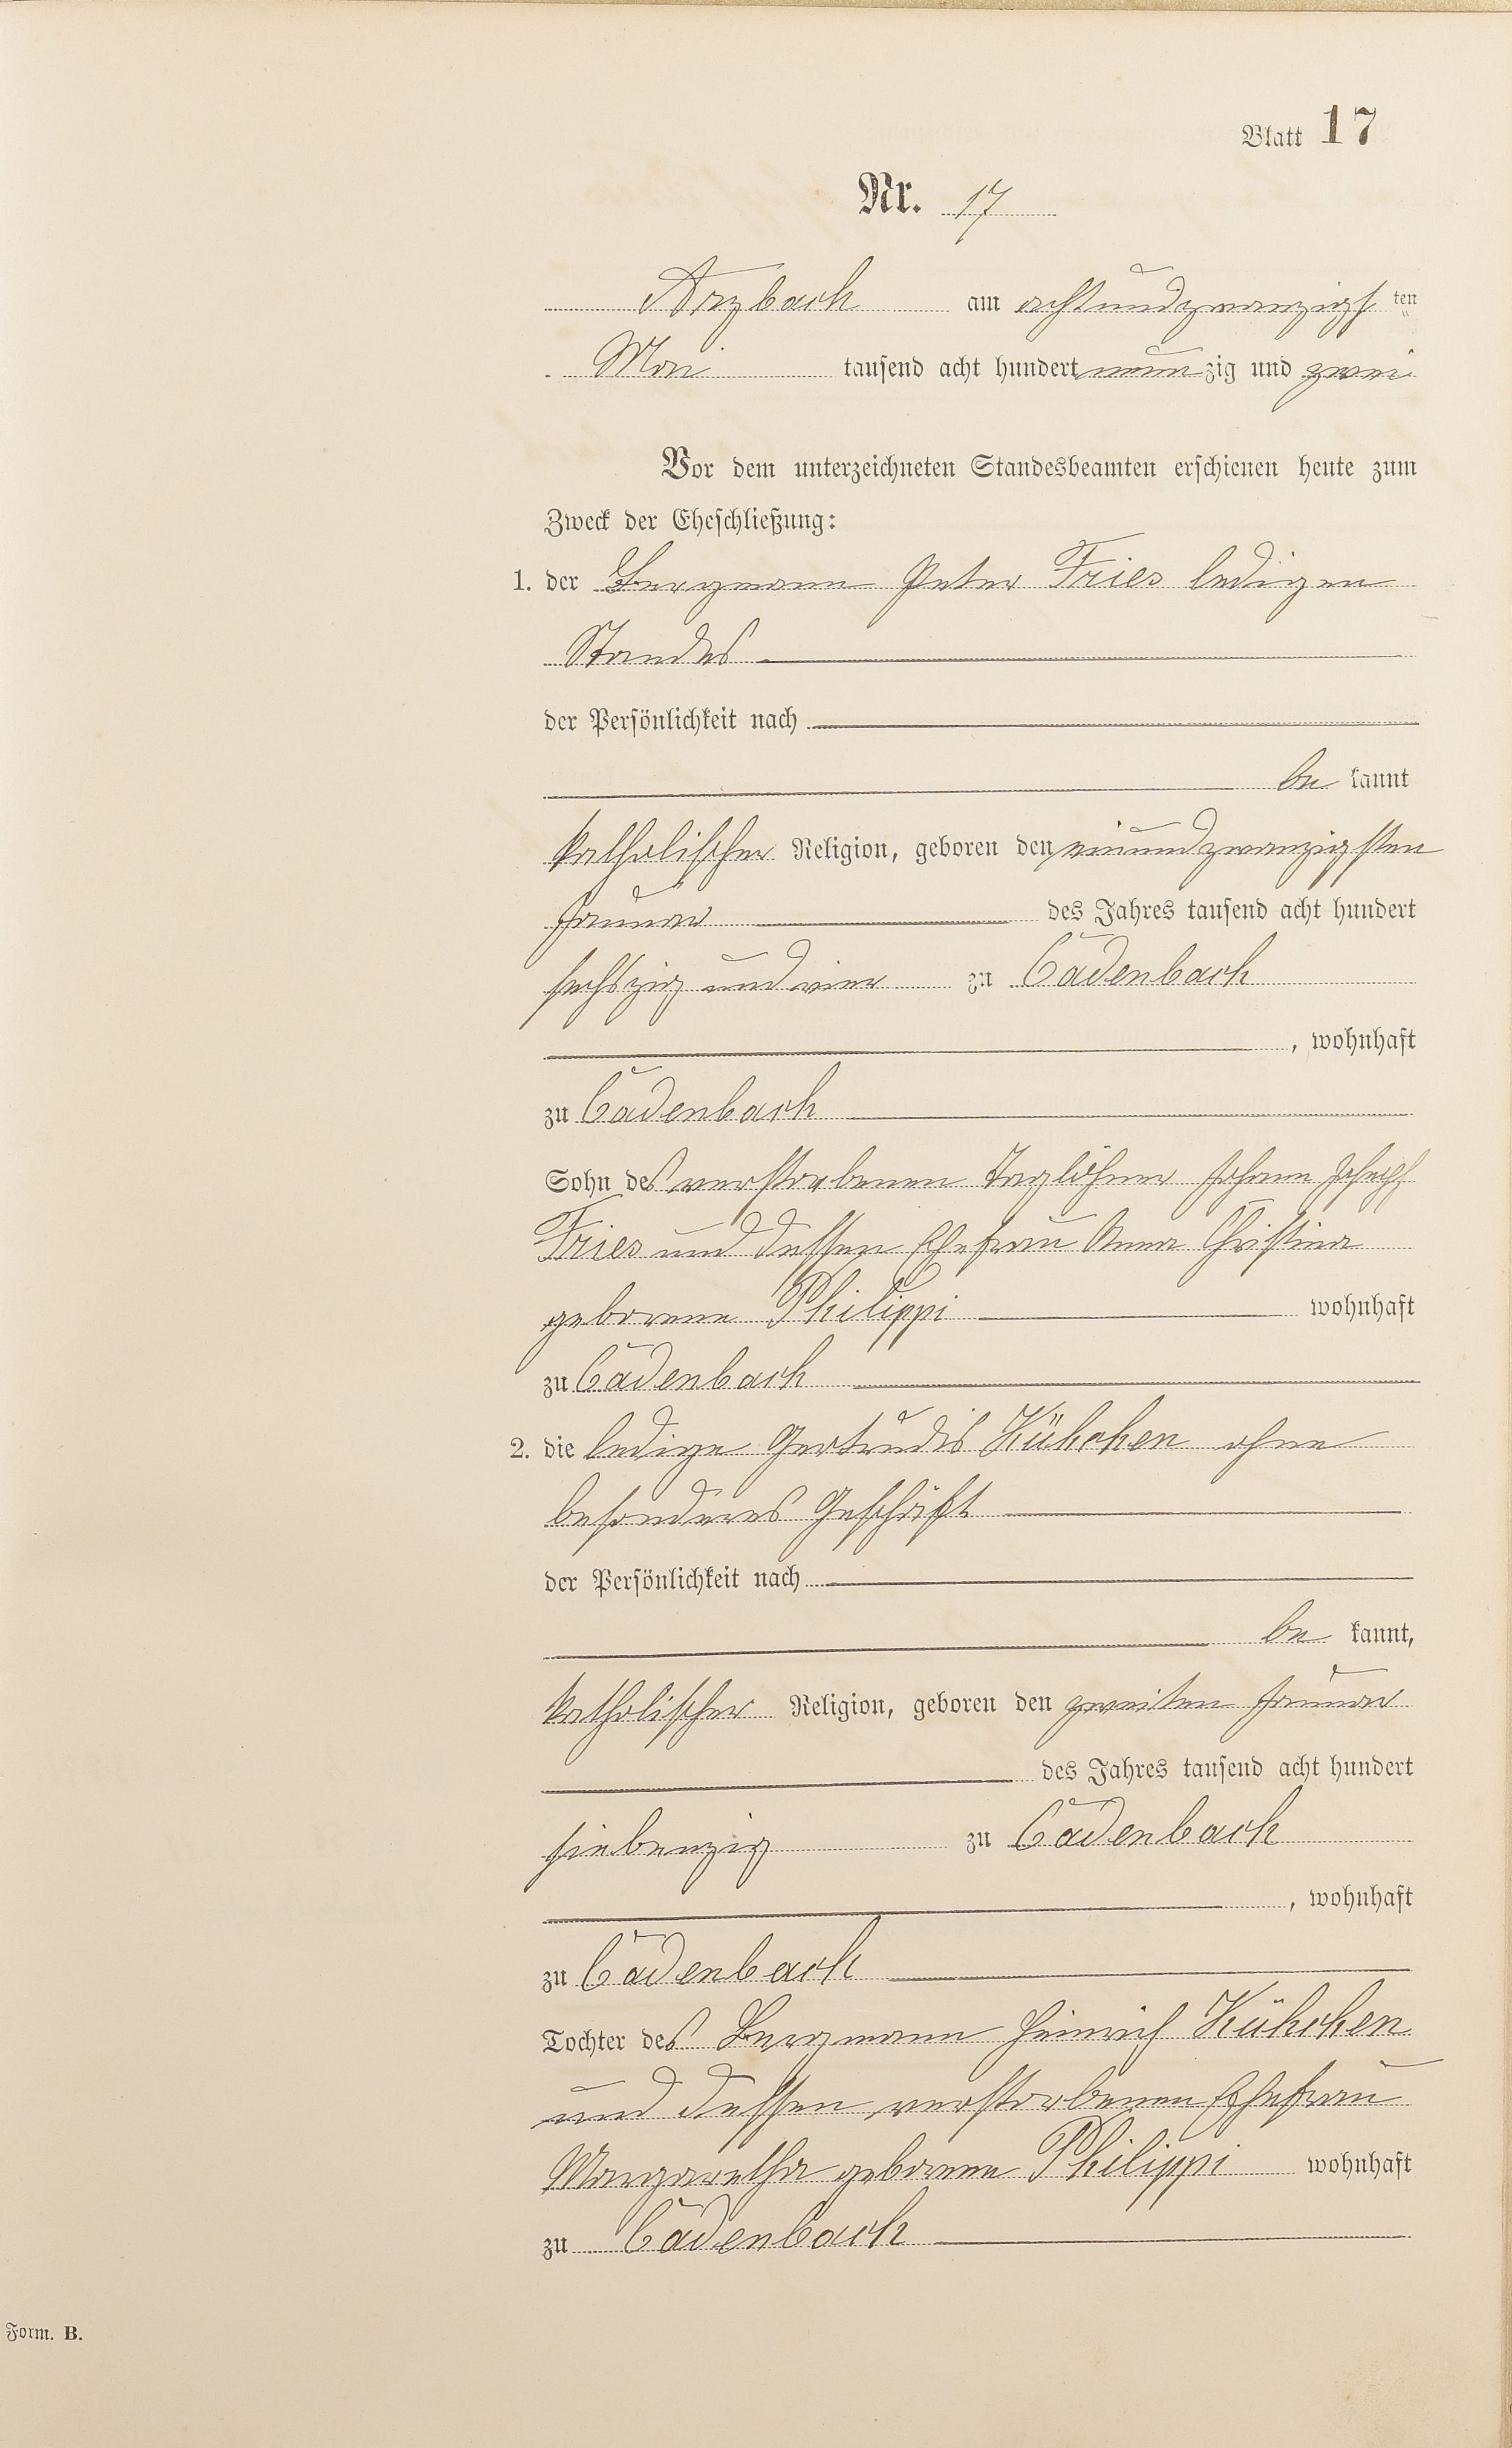 Blatt 17
Nr. 17
Arzbach am achtundzwanzigsten
Mai tausend acht hundert neunzig und zwei
Vor dem unterzeichneten Standesbeamten erschienen heute zum
Zweck der Eheschließung:
1. der Bergmann Peter Fries ledigen
Standes
der Persönlichkeit nach
be kannt
katholischer Religion, geboren den einundzwanzigsten
Januar des Jahres tausend acht hundert
sechszig und vier zu Cadenbach
, wohnhaft
zu Cadenbach
Sohn des verstorbenen Taglöhner Johann Joseph
Fries und dessen Ehefrau Anna Christina
geborene Philippi wohnhaft
zu Cadenbach
2. die ledige Gertrudis Kühchen ohne
besonderes Geschäft
der Persönlichkeit nach
be kannt,
katholischer Religion, geboren den zweiten Januar
des Jahres tausend acht hundert
siebenzig zu Cadenbach
, wohnhaft
zu Cadenbach
Tochter des Bergmann Heinrich Kühchen
und dessen verstorbenen Ehefrau
Margaretha geborene Philippi wohnhaft
zu Cadenbach
Form. B.